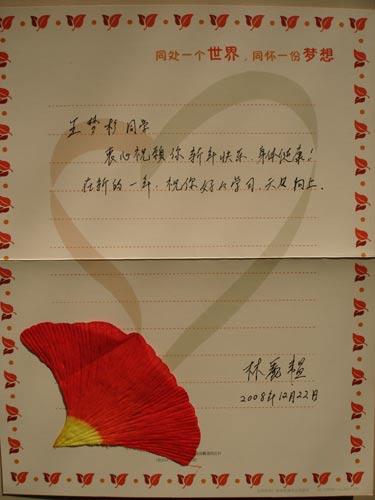 同处一个世界，同怀一份梦想
王梦杉同学
衷心祝愿你新年快乐、身体健康！
在新的一年，祝你好好学习、天天向上.
2008年12月22日